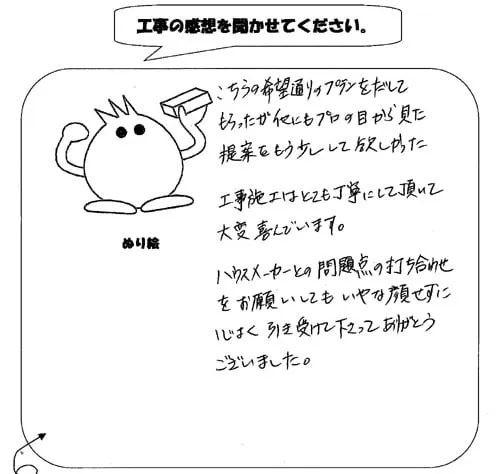 工事の感想を聞かせてください。
こちらの希望通りのプランをだして
もらったが他にもプロの目から見た
提案をもう少しして欲しかった
工事施工はとても丁寧にして頂いて
大変喜んでいます。
ぬり絵
ハウスメーカーとの問題点の打ち合わせ
をお願いしてもいやな顔せずに
心よく引き受けて下さってありがとう
ございました。